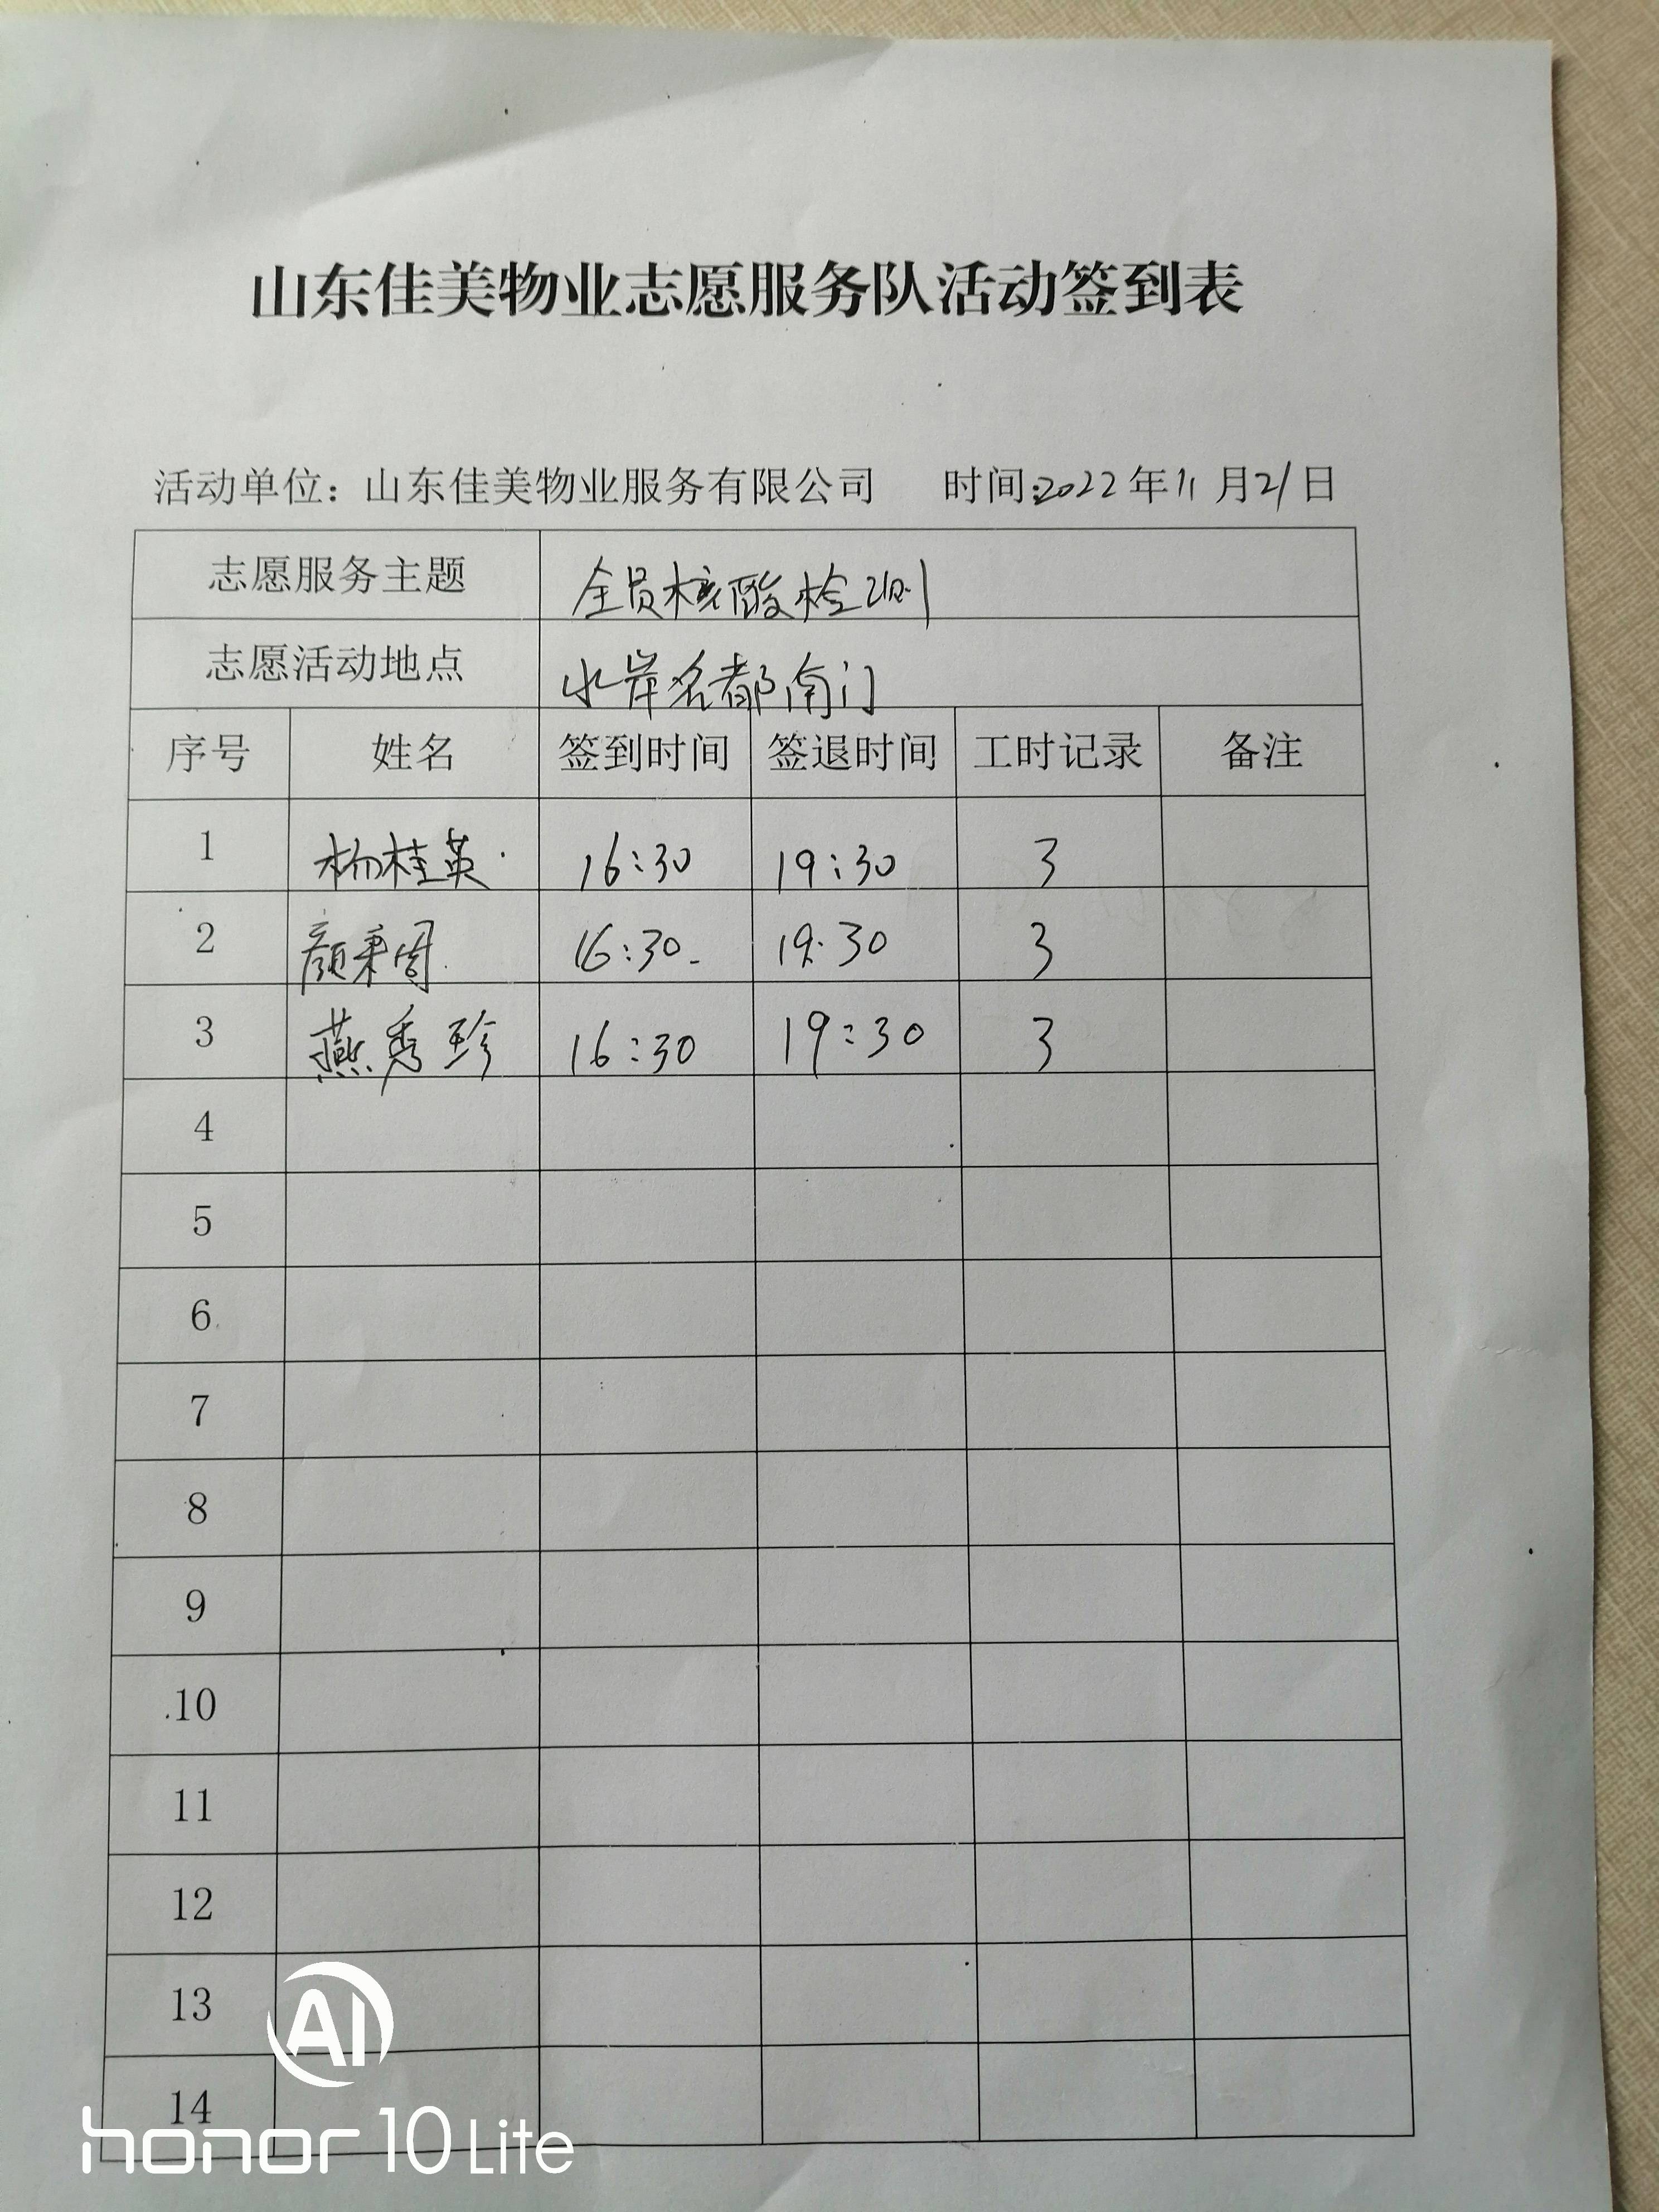 山东佳美物业志愿服务队活动签到表
活动单位：山东佳美物业服务有限公司 时间:2022年11月21日
志愿服务主题 全员核酸检测
志愿活动地点 水岸名都南门
序号 姓名 签到时间 签退时间 工时记录 备注
1 杨桂英 16:30 19:30 3
2 颜秉周 16:30 19:30 3
3 燕秀珍 16:30 19:30 3
4
5
6
7
8
9
10
11
12
13
14
AI
honor 10 Lite